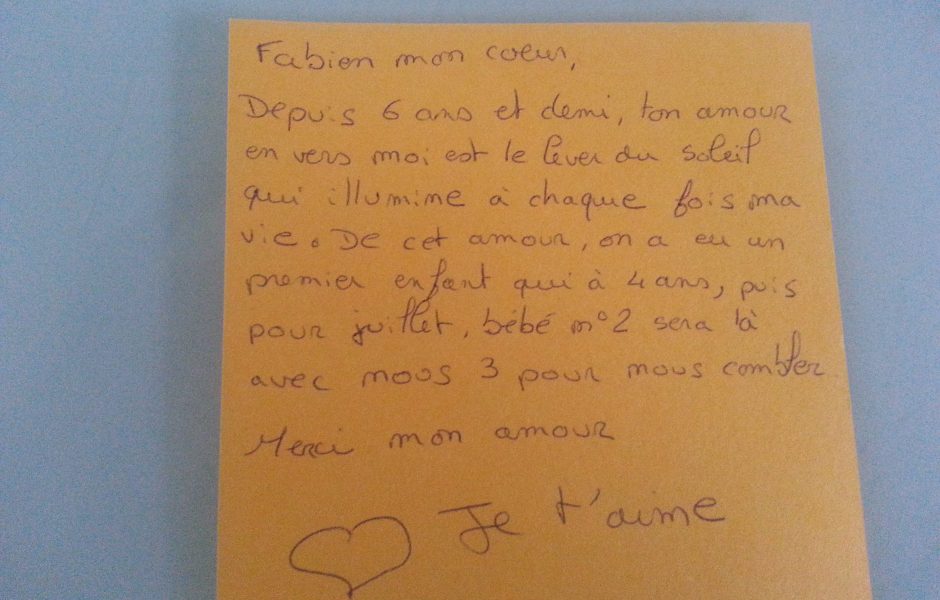 Fabien mon coeur,
Depuis 6 ans et demi, ton amour
en vers moi est le lever du soleil
qui illumine à chaque fois ma
vie. De cet amour, on a eu un
premier enfant qui à 4 ans, puis
pour juillet, bébé n°2 sera là
avec nous 3 pour nous combler
Merci mon amour
Je t'aime